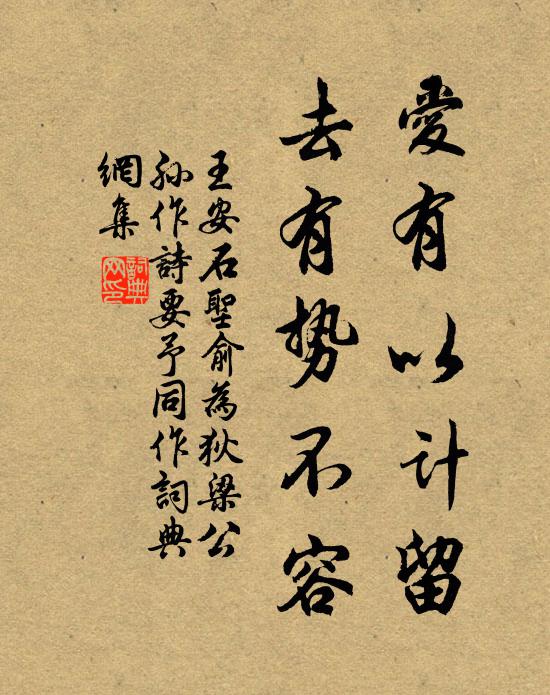 愛有以計留
去有势不容
王安石聖俞為狄梁公
孫作詩要予同作詞典
網集
詞典網印